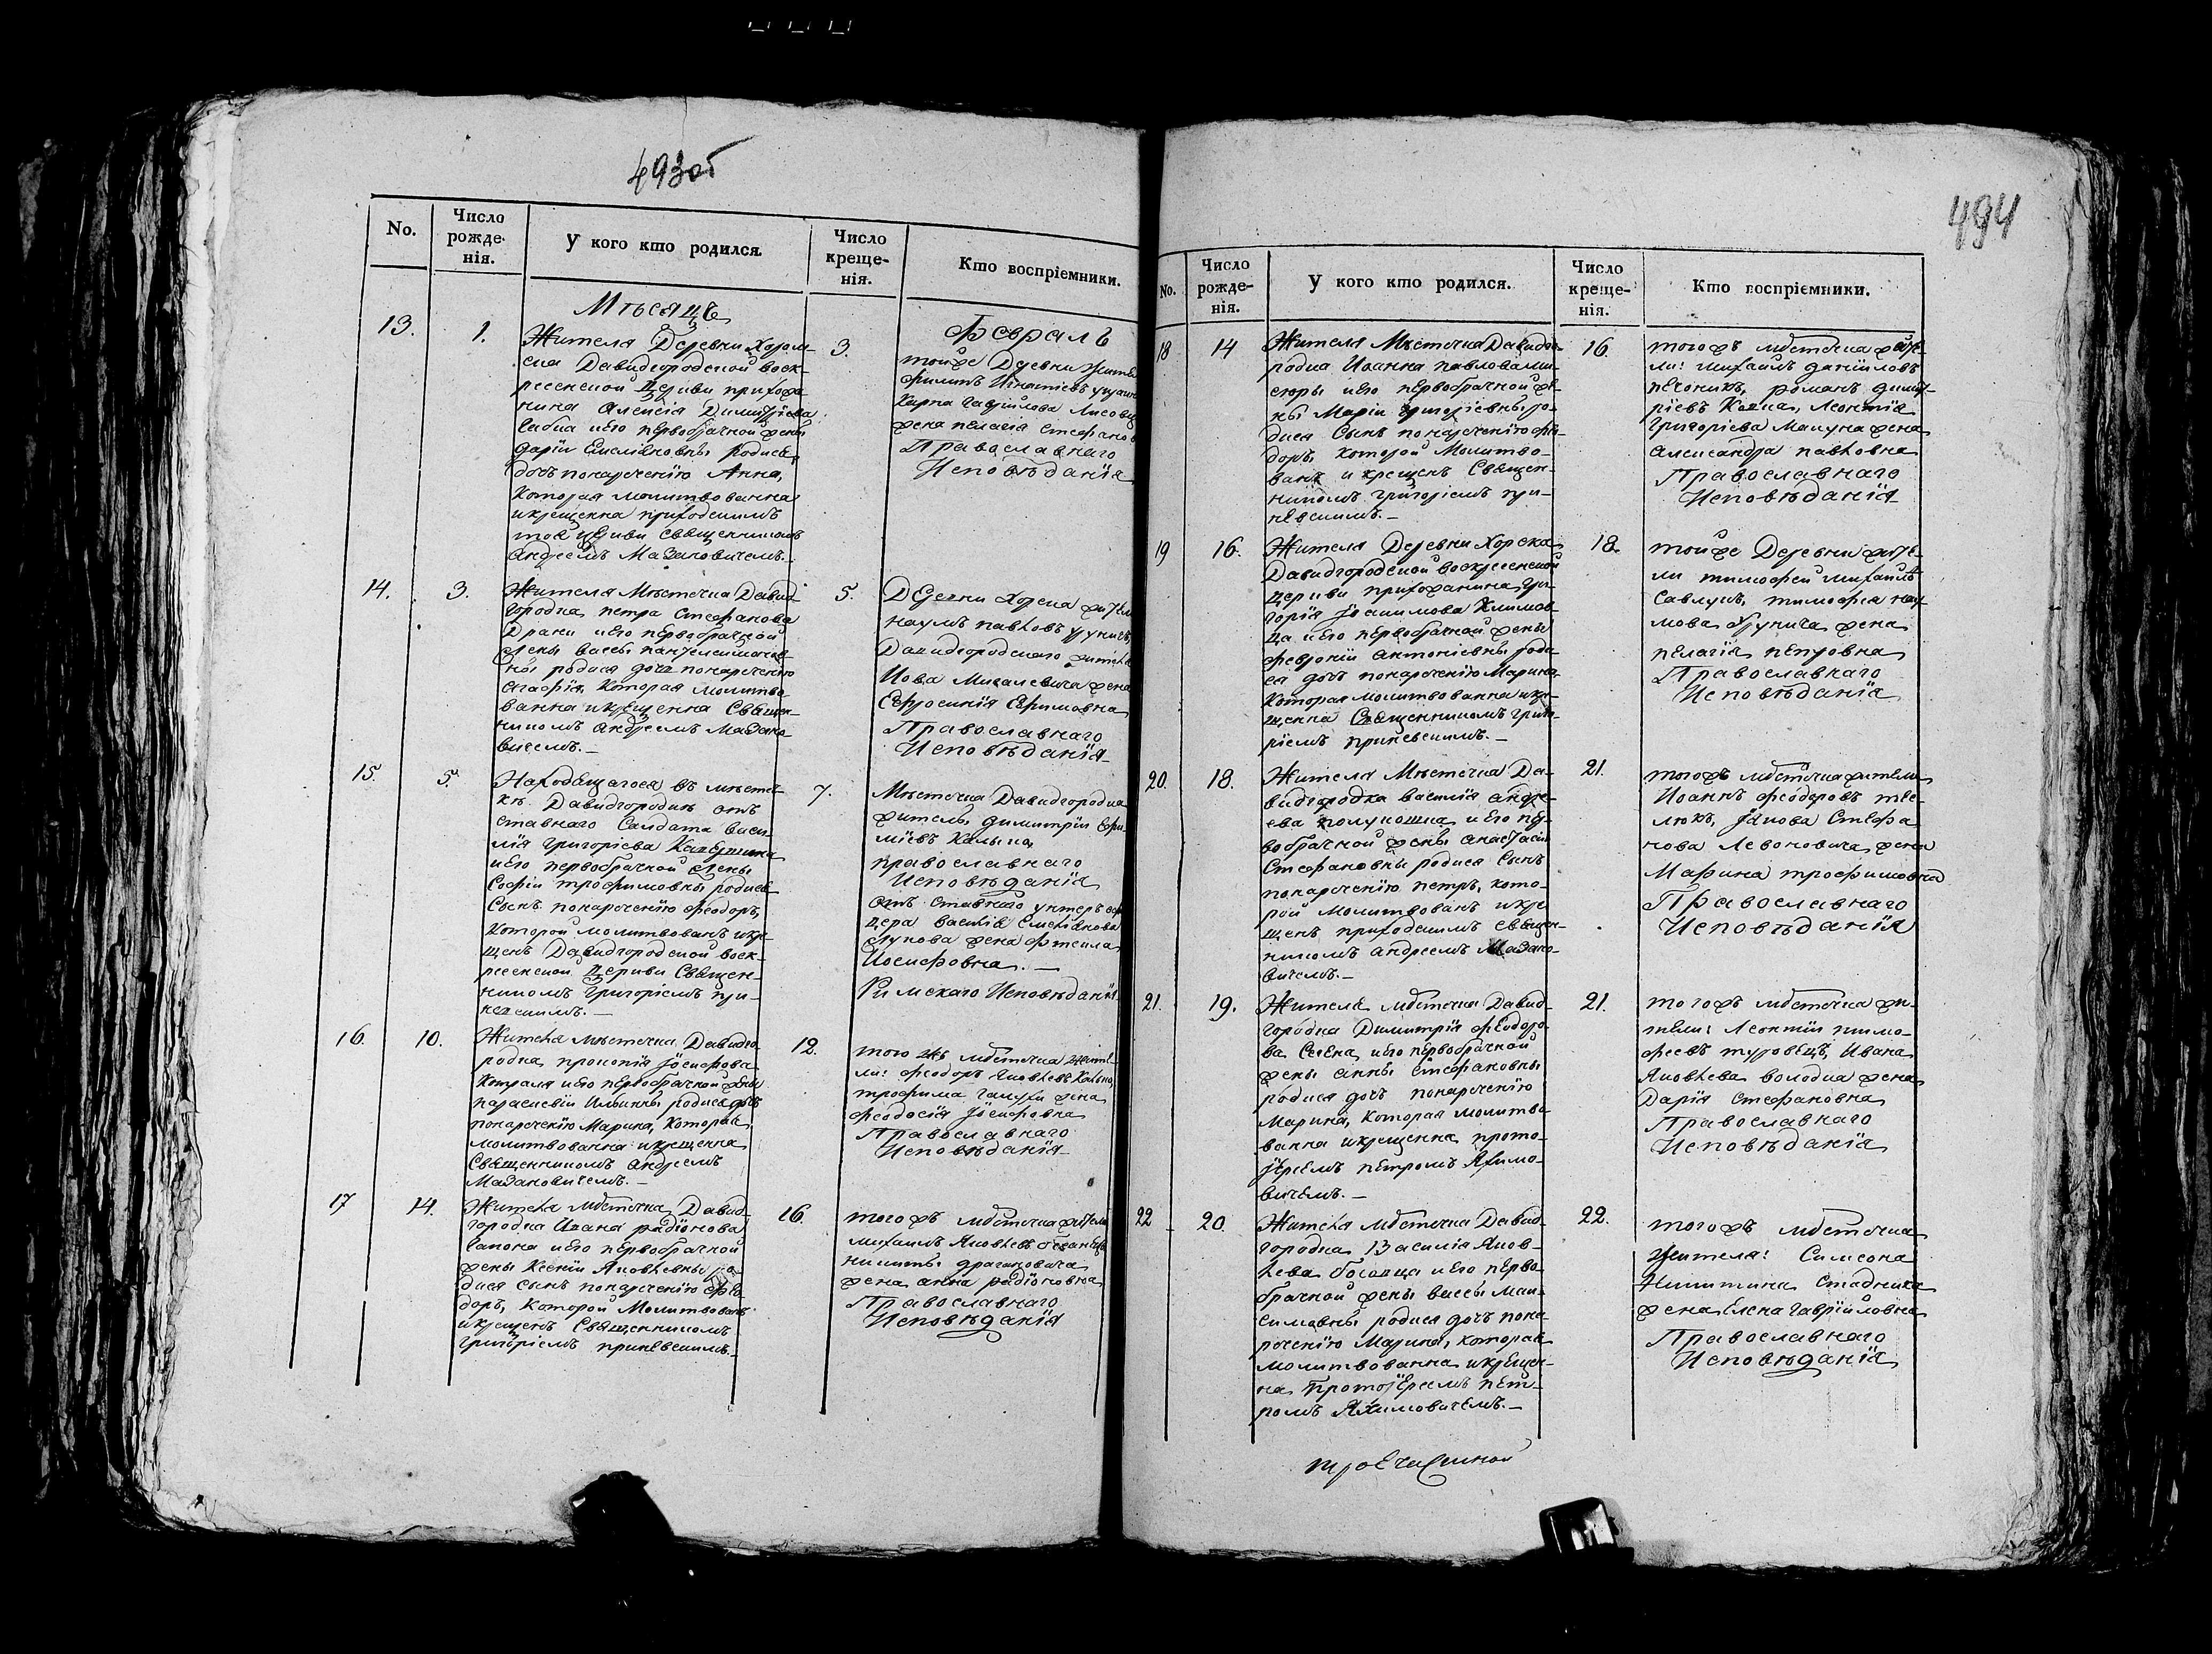 493об
No.
Число
рожде-
нія.
У кого кто родился.
Число
креще-
нія.
Кто воспріемники.
Мѣсяцъ
Февраль
13.
1.
Жителя Деревни Хорска
Давидгородской воск-
ресенской Церкви прихожа-
нина Алексія Димитріева
и его первобрачной жены
Даріи Емельяновны родися
дочь понареченію Анна,
Которая молитвованна
и крещенна приходскимъ
тоя Церкви Священникомъ
Андреемъ Мазановичемъ.-
3.
тойже Деревни жители
Филипъ Игнатіевъ
Карпа Гаврійлова Лисовца
жена Пелагія Стефанов
Православнаго
Исповѣданія
14.
3.
Жителя Мѣстечка Давид-
городка, Петра Стефанова
и его первобрачной
жены Вассы Пантелеимонов-
ны родися дочь понареченію
Агафія, Которая молитво
ванна и крещенна Священ-
никомъ Андреемъ Мазано
вичемъ.-
5.
Деревни Хорска жители
Наумъ Павловъ
Давидгородского жителя
Иова Михалевича жена
Ефросинія Ефимовна
Православнаго
Исповѣданія
15.
5.
Находящагося въ мѣстеч-
кѣ Давидгородкѣ от
ставнаго Салдата Васи-
лія Григоріева
и его первобрачной жены
Софіи Трофимовны родися
Сынъ понареченію Феодоръ,
Которой молитвованъ и кре-
щенъ Давидгородской воск-
ресенской Церкви Священ-
никомъ Григоріемъ при-
7.
Мѣстечка Давидгородка
житель Димитрій Ефи-
міевъ
Православнаго
Исповѣданія
отъ ставнаго унтеръ офи
цера Василія Емельянова
жена Фтекла
Иосифовна.-
Римскаго Исповѣданія
16.
10.
Жителя мѣстечка Давидго
родка, Прокопія Іосифова
и его первобрачной жены
Параскевіи Ильинны родися дочь
понареченію Марина, Которая
молитвованна и крещенна
Священникомъ Андреемъ
Мазановичемъ.-
12.
того жъ мѣстечка жите-
ли: Феодоръ Яковлевъ
Трофима жена
Феодосія Іосифовна
Православнаго
Исповѣданія
17
14.
Жителя мѣстечка Давид-
городка Ивана Радіонова
и его первобрачной
жены Ксеніи Яковлевны ро-
дися сынъ понареченію Фео-
доръ, Которой Молитвованъ
и крещенъ Священникомъ
Григоріемъ
16.
тогожъ мѣстечка жители
Михаилъ Яковлевъ
Никиты
жена Анна Радіоновна
Православнаго
Исповѣданія
494
No.
Число
рожде-
нія.
У кого кто родился.
Число
креще-
нія.
Кто воспріемники.
18
14
Жителя Мѣстечка Давидго-
родка Иоанна Павлова
и его первобрачной же-
ны Маріи Григоріевны ро-
дися Сынъ понареченію Фео-
доръ, Которой Молитво-
ванъ и крещенъ Священ-
никомъ Григоріемъ
16.
тогожъ мѣстечка жите-
ли: Михаилъ Даніиловъ
Романъ Димит-
ріевъ Леонтія
Григоріева жена
Александра Павловна
Православнаго
Исповѣданія
19
16.
Жителя Деревни Хорска
Давидгородской воскресенской
Церкви прихожанина Гри-
горія Климов-
ца и его первобрачной жены
Февроніи Антоніевны роди
ся дочь понареченію Марина
Которая молитвованна и кре-
щенна Священникомъ Григо-
ріемъ
18.
тойже Деревни жите-
ли Тимофей Михайловъ
Савлукъ, Тимофея Нау-
мова жена
Пелагія Петровна
Православнаго
Исповѣданія
20.
18.
Жителя Мѣстечка Да-
видгородка Василія Андре-
ева Полукошка и его пер-
вобрачной жены Анастасіи
Стефановны родися Сынъ
понареченію Петръ, кото-
рой молитвованъ и кре
щенъ приходскимъ Священ-
никомъ Андреемъ Мазано-
вичемъ.-
21.
тогожъ мѣстечка жители
Иоаннъ Феодоровъ
Стефа
нова Левоновича жена
Марина Трофимовна
Православнаго
Исповѣданія
21.
19.
Жителя мѣстечка Давид-
городка Димитрія Феодоро-
ва и его первобрачной
жены Анны Стефановны
родися дочь понареченію
Марина, Которая молитво
ванна и крещенна прото-
іереемъ Петромъ Яхимо-
вичемъ.-
21.
тогожъ мѣстечка жи-
тели: Леонтій Тимо-
феевъ Туровецъ, Ивана
Яковлева жена
Дарія Стефановна
Православнаго
Исповѣданія
22
20.
Жителя мѣстечка Давид-
городка Василія Яков-
лева и его перво
брачной жены Вассы Мак-
симовны родися дочь пона-
реченію Марина, Которая
молитвованна и крещен-
на Протоіереемъ Пет-
ромъ Яхимовичемъ.-
22.
тогожъ мѣстечка
жителя: Симеона
Никитина Стадника
жена Елена Гаврійловна
Православнаго
Исповѣданія